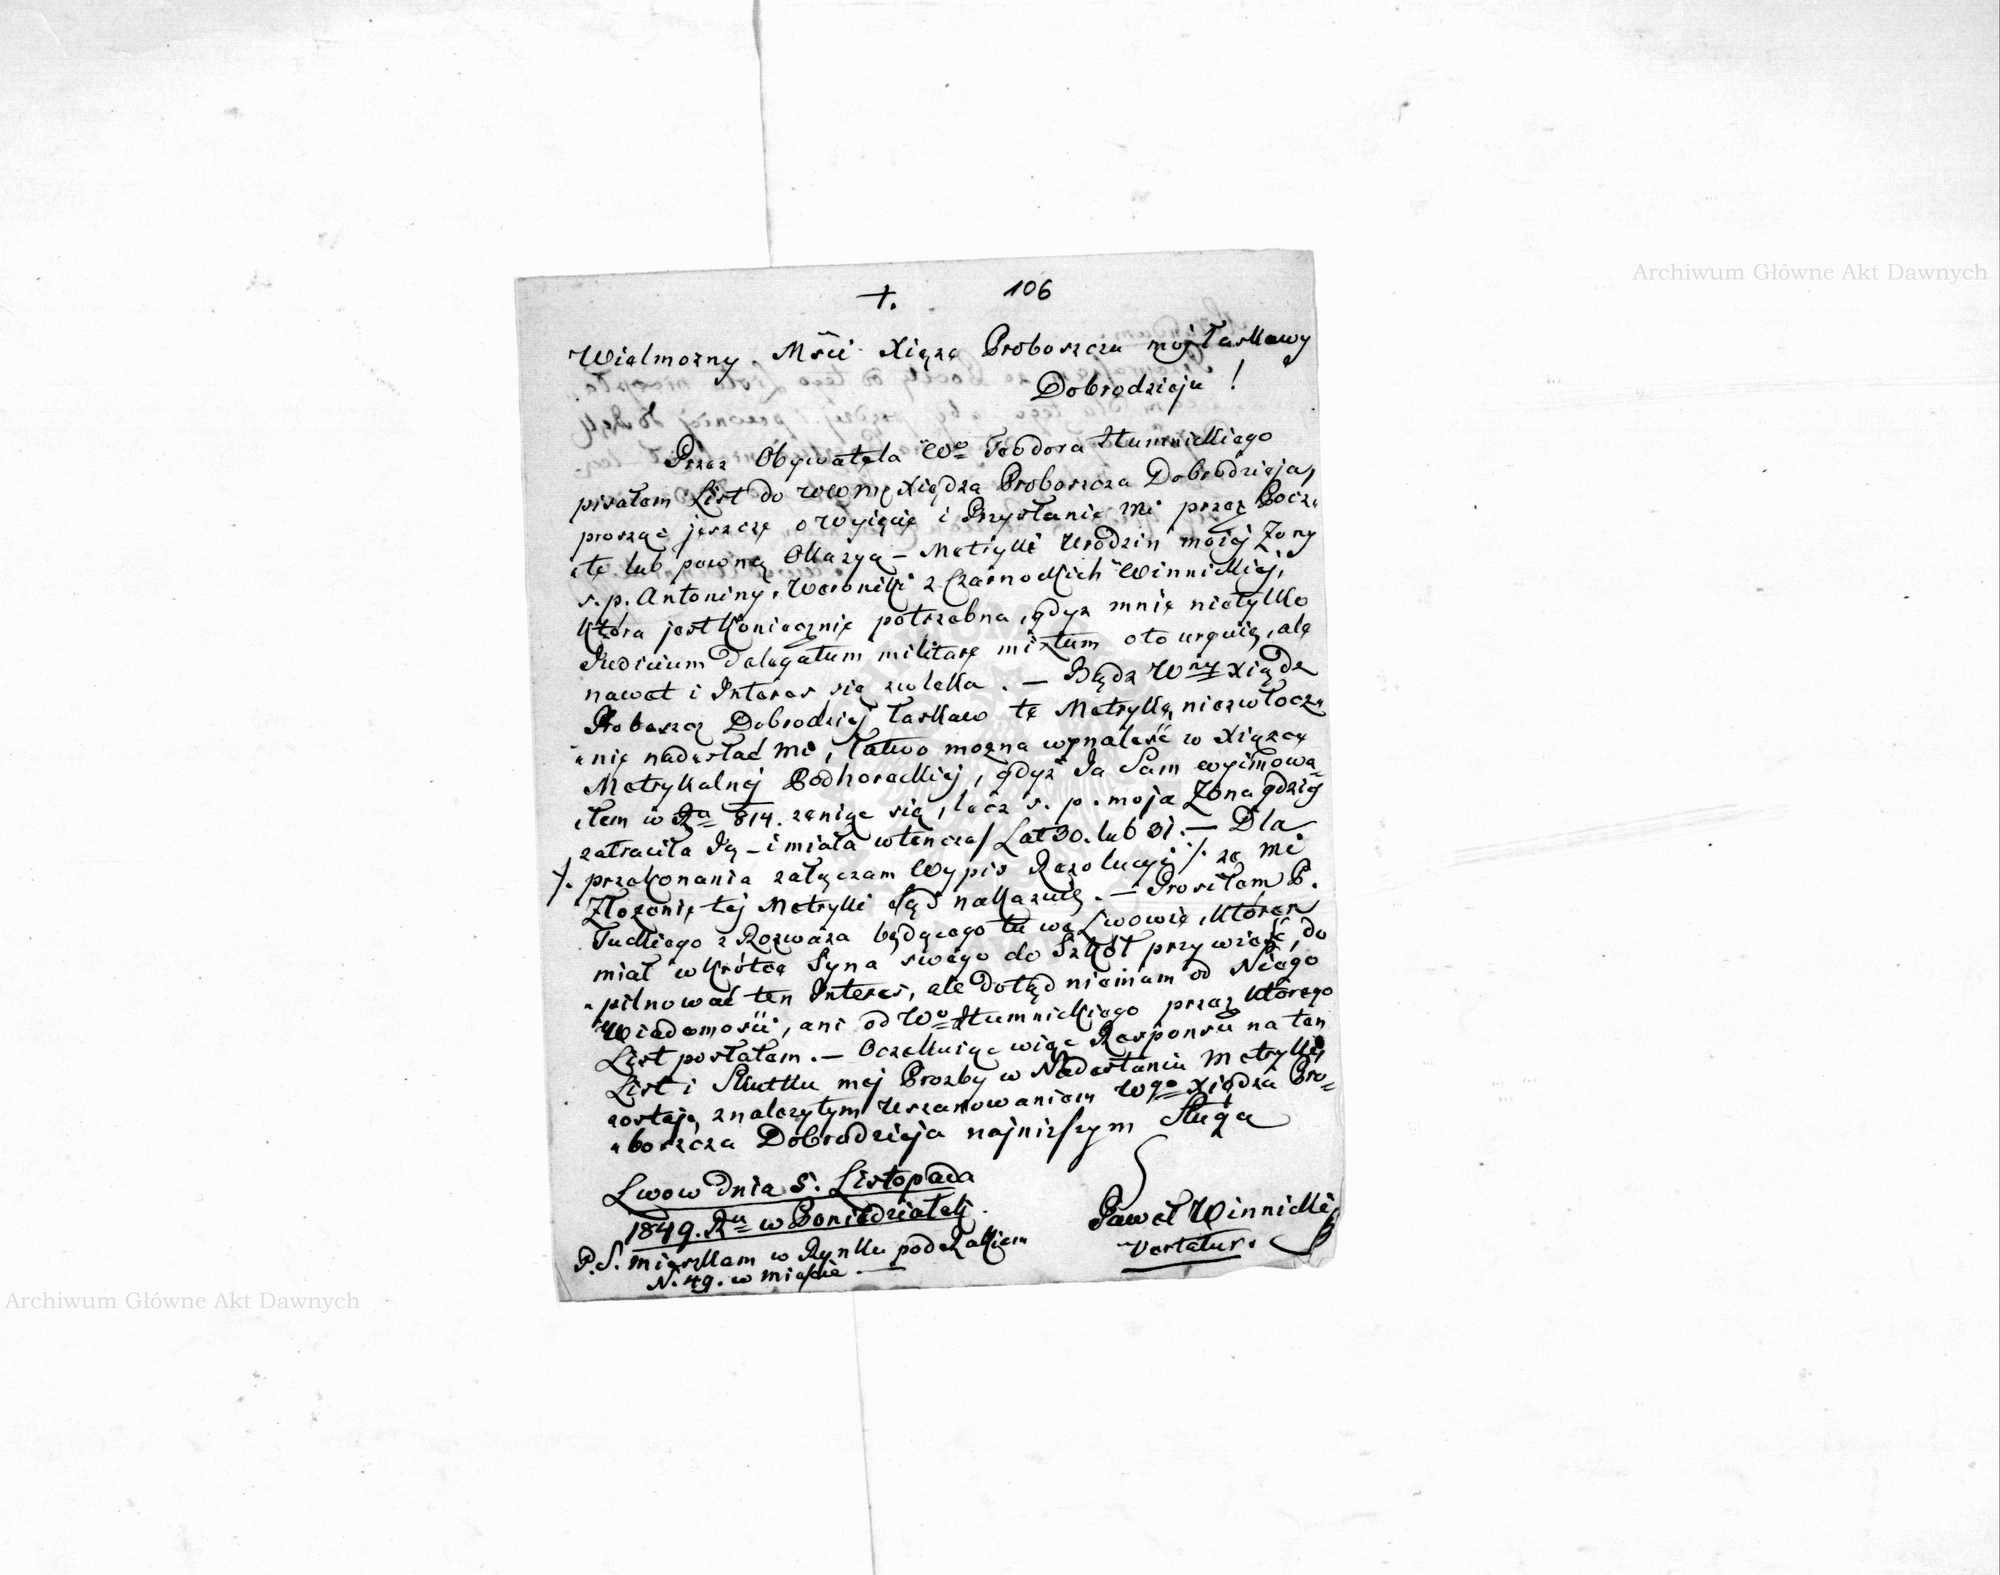 +. 106
Wielmozny Mści Xięże Proboszczu mój łaskawy
Dobrodzieju !
Przez Obywatela Wo Teodora Słumnickiego
pisałem List do WWMę Xiędza Proboszcza Dobrodzieja,
prosząc jeszcze, o Wyięcie i Przysłanie mi przez Pocz„
„tę lub pewną Okazyą – Metryki Urodzin mojej Żony
s. p. Antoniny, Weroniki z Czarnockich Winnickiej,
która jest koniecznie potrzebna, gdyz mnie nietylko
Iudicium delegatum militare mixtum oto urguie, ale
nawet i Interes się zwleka. — Bądz Wny Xiądz
Proboszcz Dobrodziej łaskaw tę Metrykę niezwłocz„
„nie nadesłać mi, łatwo mozna wynaleść w Xiązce
Metrykalnej Podhoreckiej, gdyż Ja Sam wyimowa„
„łem w Ru 814. zeniąc się, lecz s. p. moja Żona gdzieś
zatraciła Ją – i miała wtenczas Lat 30. lub 31. — Dla
./. przekonania załączam Wypis Rezolucyi ./. ze mi
Złozenie tej Metryki Sąd nakazuie. — Prosiłem P.
Tuckiego z Rozwaza będącego tu we Lwowie, któren
miał wkrótce Syna swego do Szkół przywieść, do
„pilnować ten Interes, ale dotąd niemam od Niego
Wiadomości, ani od Wo Słumnickiego przez którego
List posłałem. — Oczekuiąc więc Responsu na ten
List i Skutku mej Prozby w Nadesłaniu Metryki
zostaję z nalezytym Uszanowaniem Wgo Xiędza Pro„
„boszcza Dobrodzieja najnizszym Sługą
Lwow dnia 5. Listopada
1849. Ru w Poniedziałek.
Paweł Winnicki
Vertatur.
P. S. mieszkam w Rynku pod Rakiem
N. 49. w mieście —
Archiwum Główne Akt Dawnych
Archiwum Główne Akt Dawnych